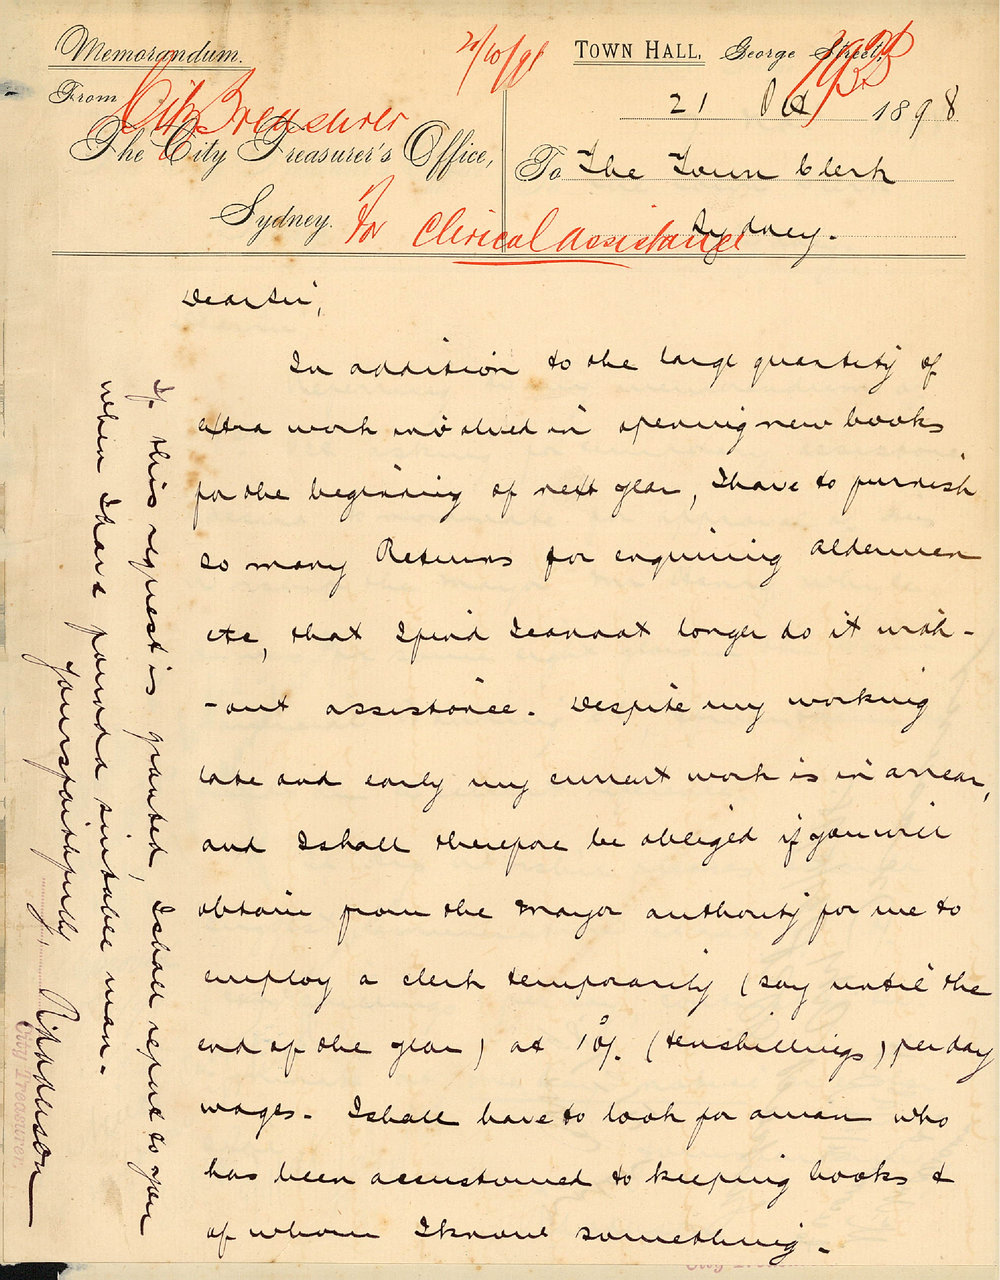 Memorandum.
21/10/98
TOWN HALL, George Street,
From
City Treasurer
21 Oct 1898
The City Treasurer's Office,
To The Town Clerk
Sydney.
Sydney.
For Clerical Assistance
Dear Sir,
In addition to the large quantity of
extra work involved in opening new books
for the beginning of next year, I have to furnish
so many Returns for enquiring Aldermen
etc, that I find I cannot longer do it with-
-out assistance. Despite my working
late and early my current work is in arrear,
and I shall therefore be obliged if you will
obtain from the Mayor authority for me to
employ a clerk temporarily (say until the
end of the year) at 10/. (ten shillings) per day
wages. I shall have to look for a man who
has been accustomed to keeping books &
of whom I know something.
If this request is granted, I shall report to you
when I have found a suitable man.
Yours faithfully
City Treasurer.